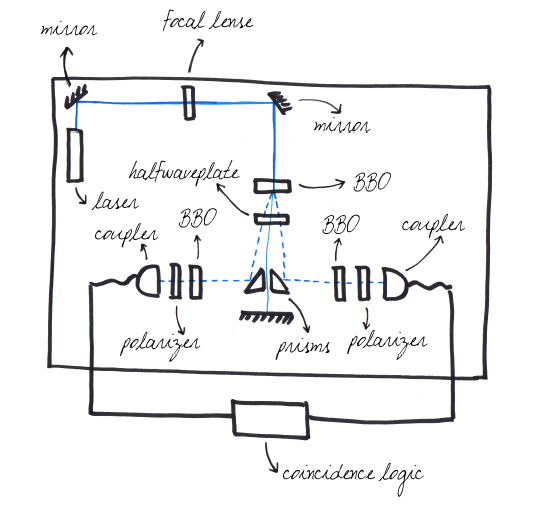 focal lense
mirror
mirror
halfwaveplate
BBO
laser
coupler
BBO
BBO
coupler
polarizer
prisms
polarizer
coincidence logic